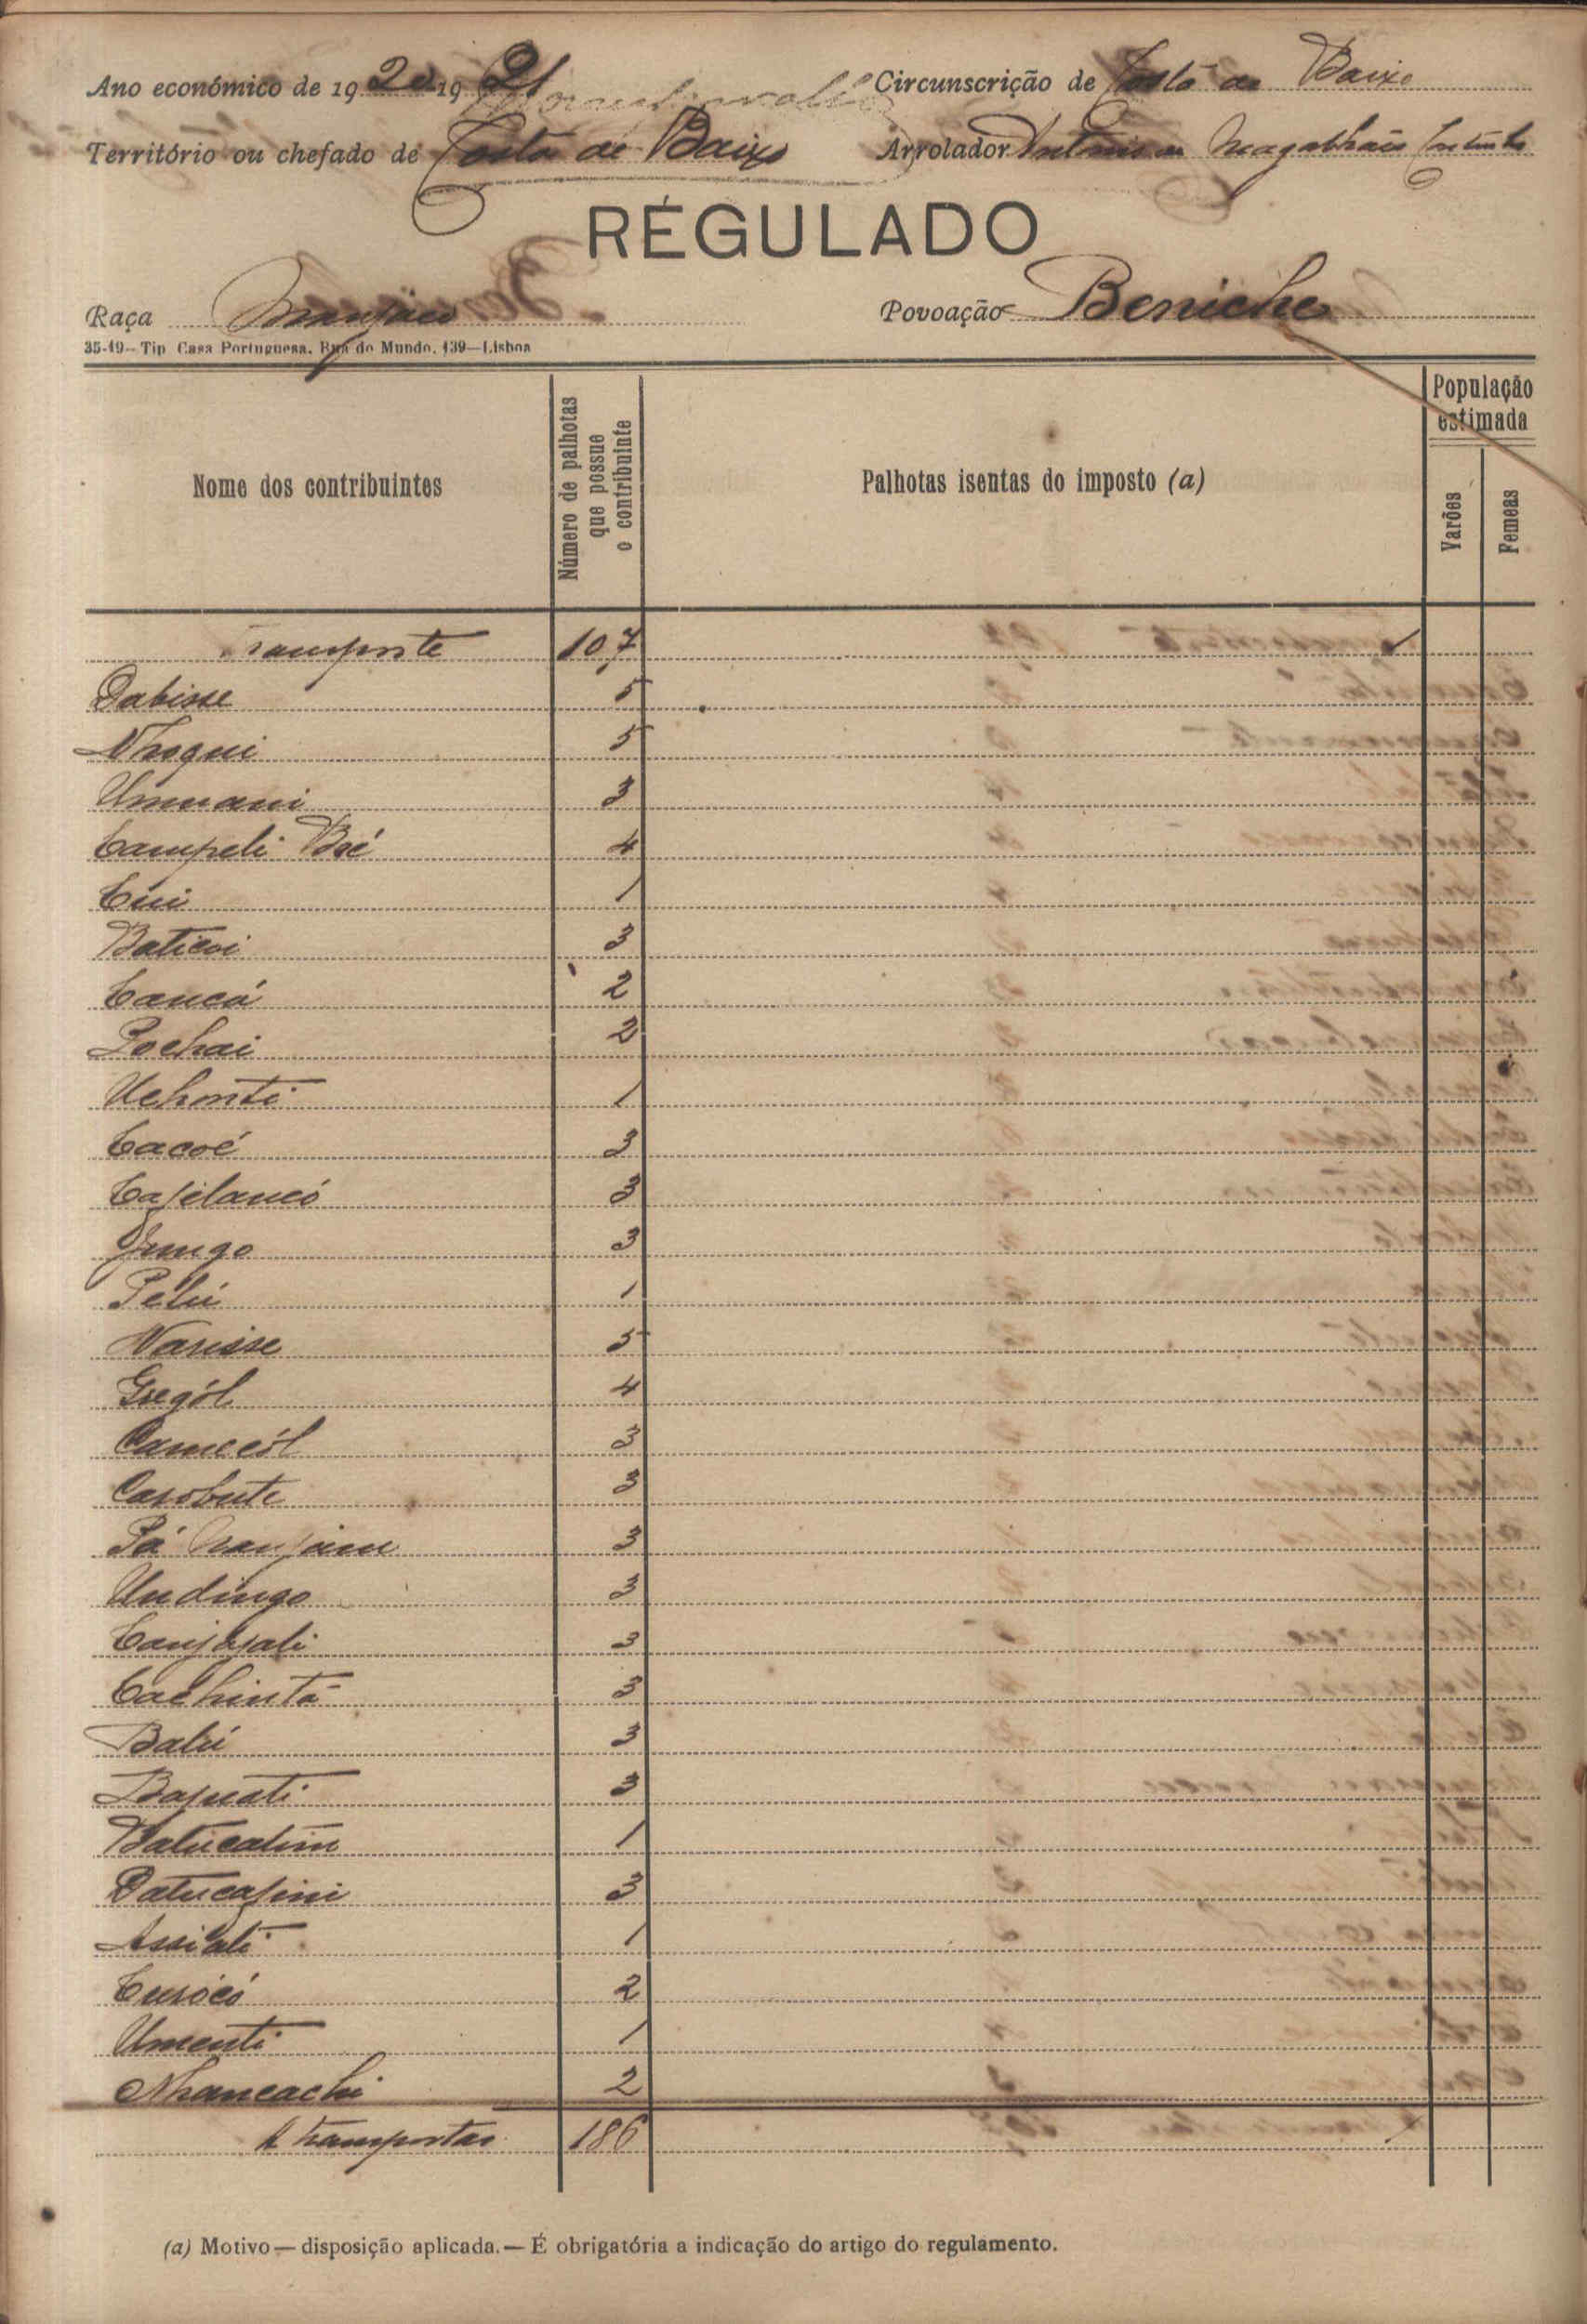 Ano económico de 1920 a 1921 Circunscrição de Costa de Baixo
Território ou chefado de Costa de Baixo Arrolador Antonio de Magalhães
RÉGULADO
Raça Manjaco Povoação Beniche
35-19-- Tip Casa Portuguesa. Rua do Mundo, 139—Lisboa
Nome dos contribuintes Número de palhotas que possue o contribuinte Palhotas isentas do imposto (a) População estimada Varões Femeas
Transporte 107
Dabisse 5
Nhoqui 5
Umuani 3
Campeli Boé 4
Cui 1
Baticoi 3
Caucá 2
Pochai 2
Uchonti 1
Cacoé 3
Capilancó 3
Jungo 3
Pelú 1
Narisse 5
Gregól 4
Camecól 3
Carobute 3
Pá Naujam 3
Undingo 3
Canjajali 3
Cachintá 3
Balú 3
Bapuati 3
Batucalim 1
Datucapini 3
Assiati 1
Cusócó 2
Umenti 1
Nhancachi 2
A transportar 186
(a) Motivo — disposição aplicada. — É obrigatória a indicação do artigo do regulamento.